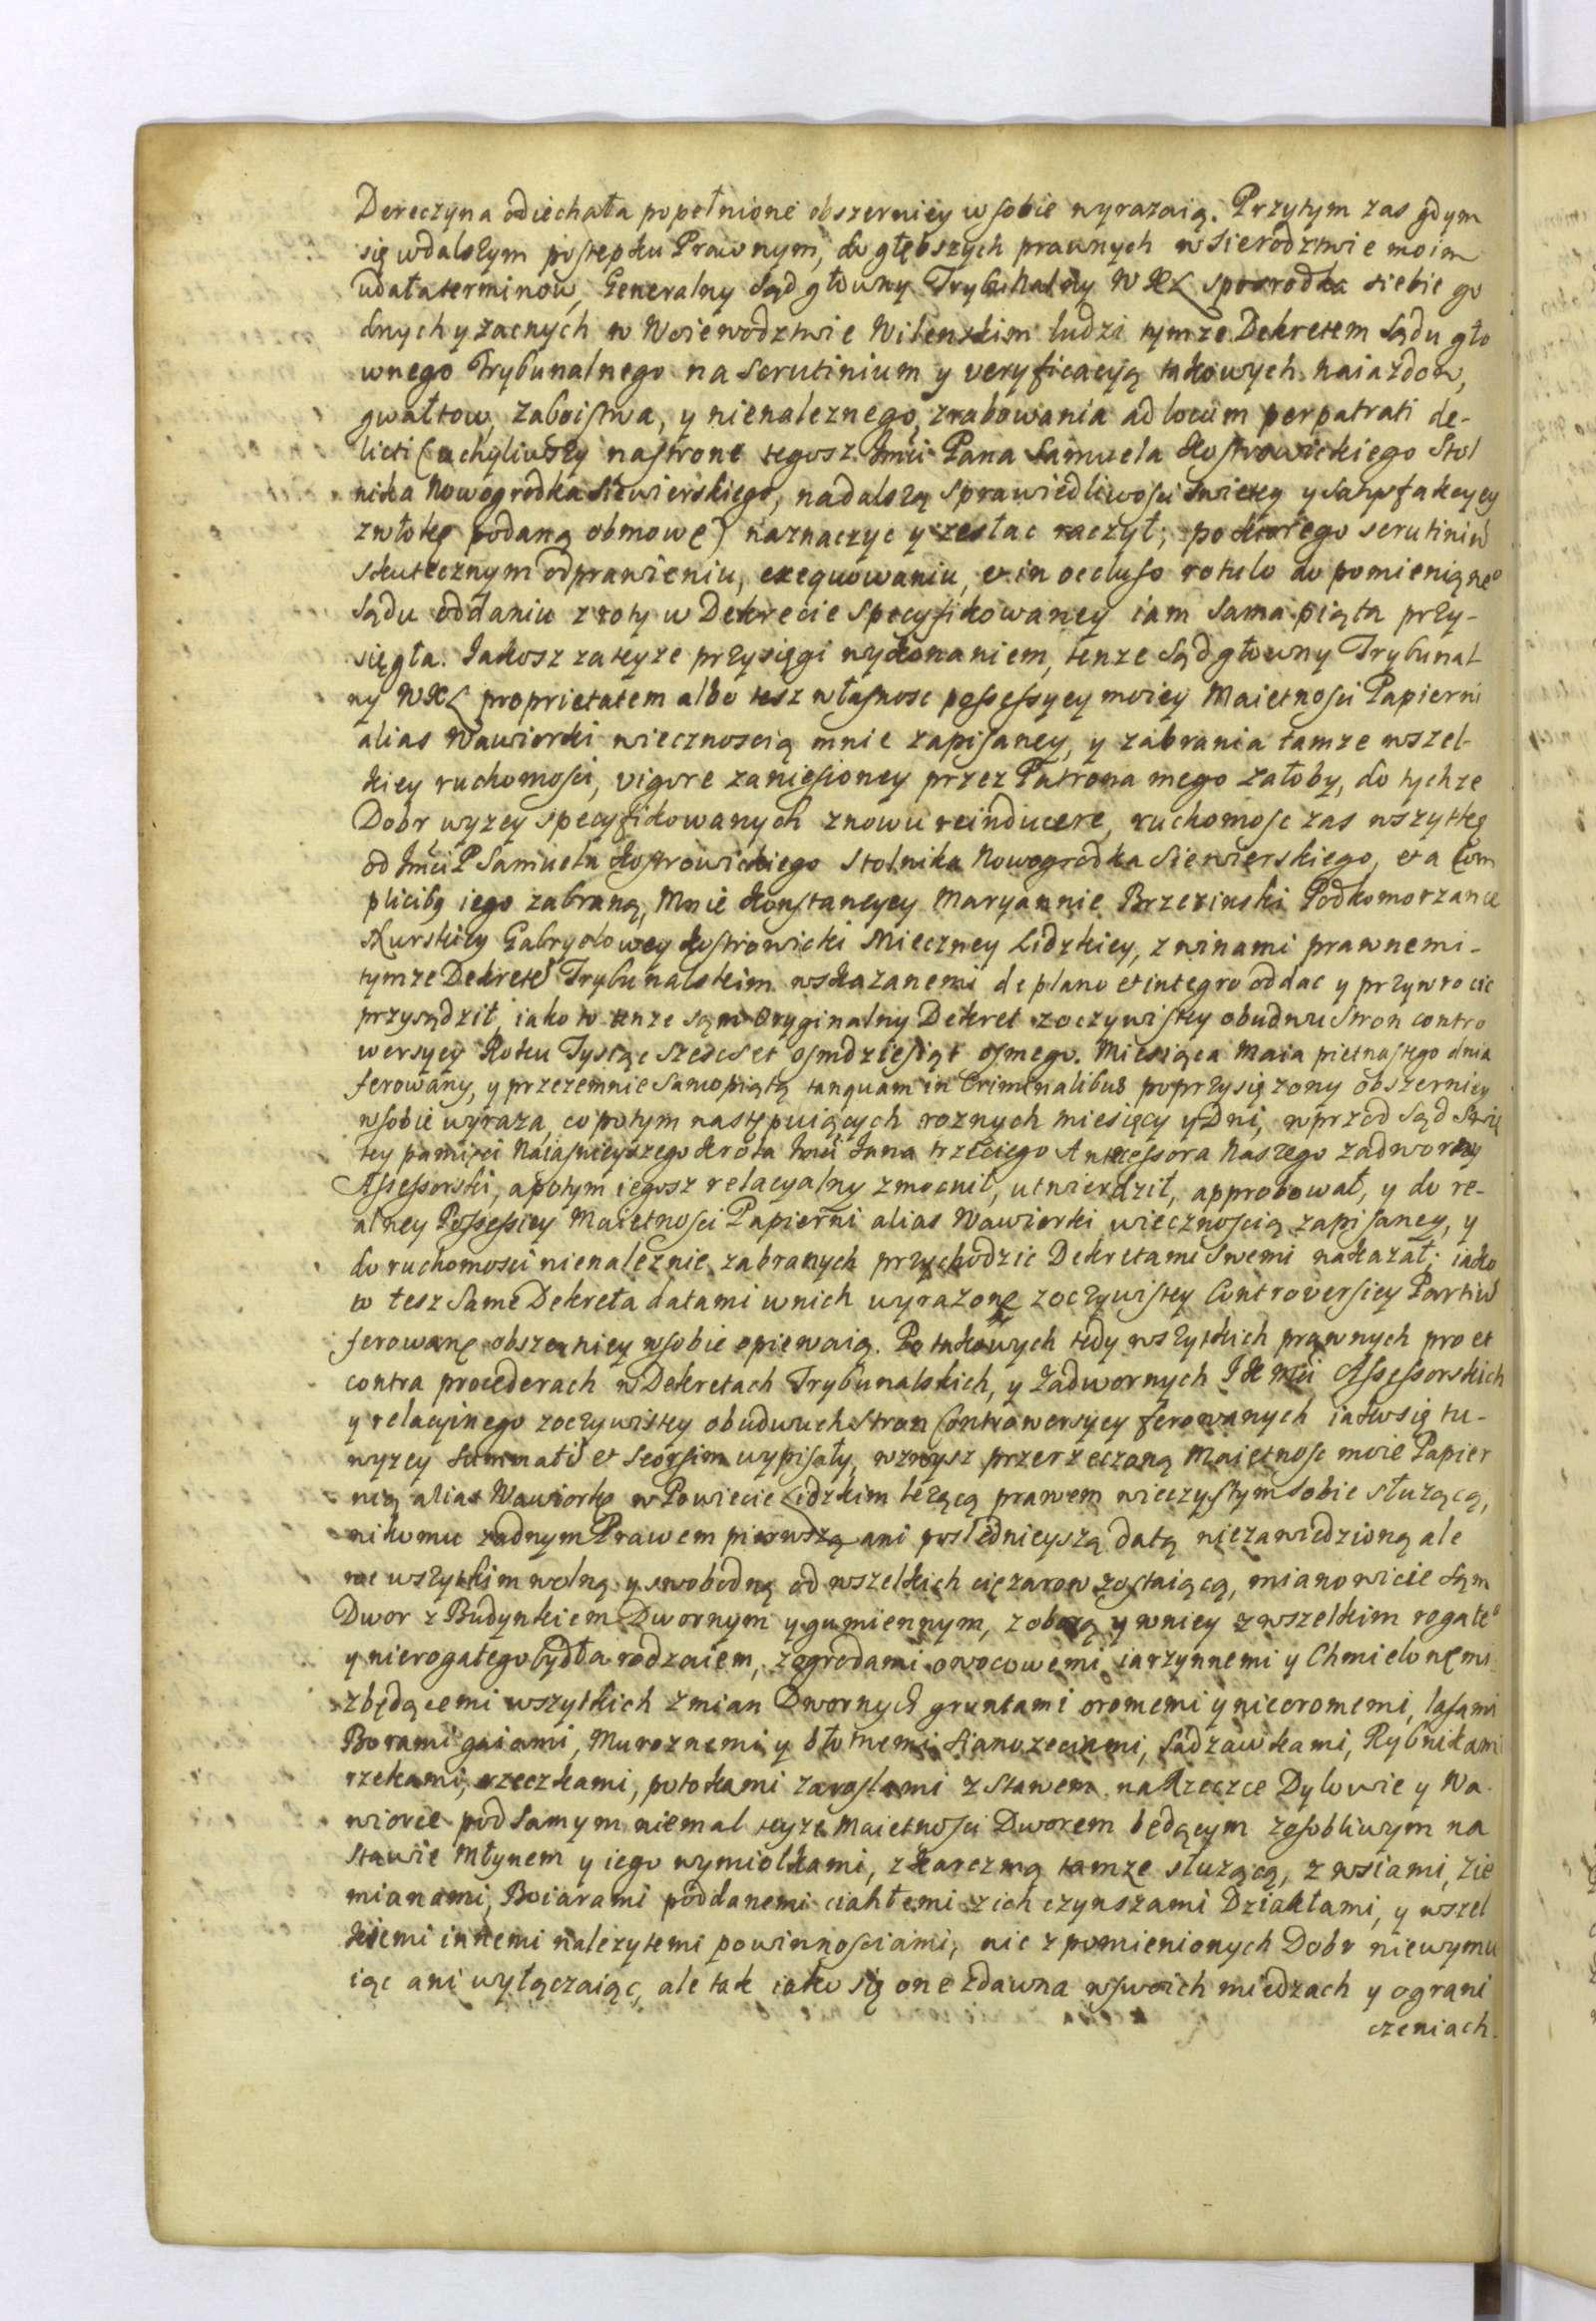 Dereczyna odiechała popełnione obszerniey w sobie wyrazaią. Przytym zas gdym
się wdalszym postepku Prawnym, do głębszych prawnych w sierodztwie moim
udała terminow, Generalny Sąd głowny Trybunalny WXL sposrodka siebie go
dnych y zacnych w Woiewodztwie Wilenskim ludzi tymze Dekretem Sądu gło
wnego Trybunalnego na Scrutinium y veryficacyą takowych naiazdow,
gwałtow, zaboistwa, y nienaleznego zrabowania ad locum perpatrati de-
licti (uchyliwszy nastronę tegosz Jmci Pana Samuela Kostrowickiego Stol
nika Nowogrodka Siewierskiego, nadalszą sprawiedliwosci swietey y satysfakcyey
zwłokę podaną obmowę) naznaczyc y zesłac raczył; po ktorego scrutiniu
skutecznym odprawieniu, exequowaniu, et in occluso rotulo do pomienioneo
Sądu oddaniu z roty w Dekrecie specyfikowaney iam sama piąta przy-
sięgła. Jakosz za teyze przysięgi wykonaniem, tenze Sąd głowny Trybunal
ny WXL proprietatem albo tesz własnosc possessyey moiey Maietnosci Papierni
alias Wawiorki wiecznoscią mnie zapisaney, y zabrania tamze wszel-
kiey ruchomosci, vigore zaniesioney przez Patrona mego załoby, do tychze
Dobr wyzey specyfikowanych znowu reinducere, ruchomosc zas wszytkę
od Jmci P Samuela Kostrowickiego Stolnika Nowogrodka Siewierskiego, et a Com
plicibq iego zabraną, Mnie Konstancyey Maryannie Brzezinski Podkomorzance
Kurskiey Gabryelowey Kostrowicki Mieczney Lidzkiey, z winami prawnemi-
tymze Dekretē Trybunalskim wskazanemi de plano et integro oddac y przywrocic
przysądził, iako to tenze sąm Oryginalny Dekret zoczywistey obudwu stron contro
wersyey Roku Tysiąc szescset osmdziesiąt osmego. Miesiąca Maia pietnastego dnia
ferowany, y przezemnie samopiątą tanquam in Criminalibus poprzysięzony obszerniey
w sobie wyraza, co potym następuiących roznych miesięcy y Dni, wprzod Sąd Swię
tey pamięci Naiasnieyszego Krola Jmci Jana trzeciego Antecessora Naszego zadworny
Assessorski, apotym iegosz relacyalny zmocnił, utwierdził, approbował, y do re-
alney Possessiey Maietnosci Papierni alias Wawiorki wiecznoscią zapisaney, y
do ruchomosci nienaleznie zabranych przychodzic Dekretami Swemi nakazał; iako
to tesz same Dekreta datami w nich wyrazonę zoczywistey Controversiey Partiu
ferowanę obszerniey w sobie opiewaią. Po takowych tedy wszytkich prawnych pro et
contra procederach w Dekretach Trybunalskich, y Zadwornych J K Mci Assessorskich
y relacyinego zoczywistey obudwuch Stron Controwersyey ferowanych iako się tu-
wyzey summatī et seorsim wypisały, wzwysz przerzeczoną Maietnosc moię Papier
nią alias Wawiorkę w Powiecie Lidzkim lezącą prawem wieczystym sobie słuzącą,
nikomu zadnym Prawem pierwszą ani poslednieyszą datą niezawiedzioną ale
we wszytkim wolną y swobodną od wszelkich ciężarow zostaiącą, mianowicie sąm
Dwor z Budynkiem Dwornym y gumiennym, z oborą y w niey z wszelkim rogateo
y nierogatego bydła rodzaiem, zogrodami owocowemi iarzynnemi y Chmielonęmi
zbędącemi wszytkich zmian Dwornych gruntami oromemi y nieoromemi, lasami
Borami gaiami, Muroznemi y błotnemi sianozęciami, Sadzawkami, Rybnikami
rzekami, rzeczkami, potokami zaroslami z stawem na Rzeczce Dylowie y Wa-
wiorce pod samym niemal teyze Maietnosci Dworem będącym zosobliwym na
Stawie Młynem y iego wymiolkami, z karczmą tamze słuzącą, z wsiami, Zie
mianami, Boiarami poddanemi ciahłemi z ich czynszami Dziakłami, y wszel
kiemi innemi nalezytemi powinnosciami, nic z pomienionych Dobr niewymu
iąc ani wyłączaiąc, ale tak iako się one zdawna w swoich miedzach y ograni
czeniach.